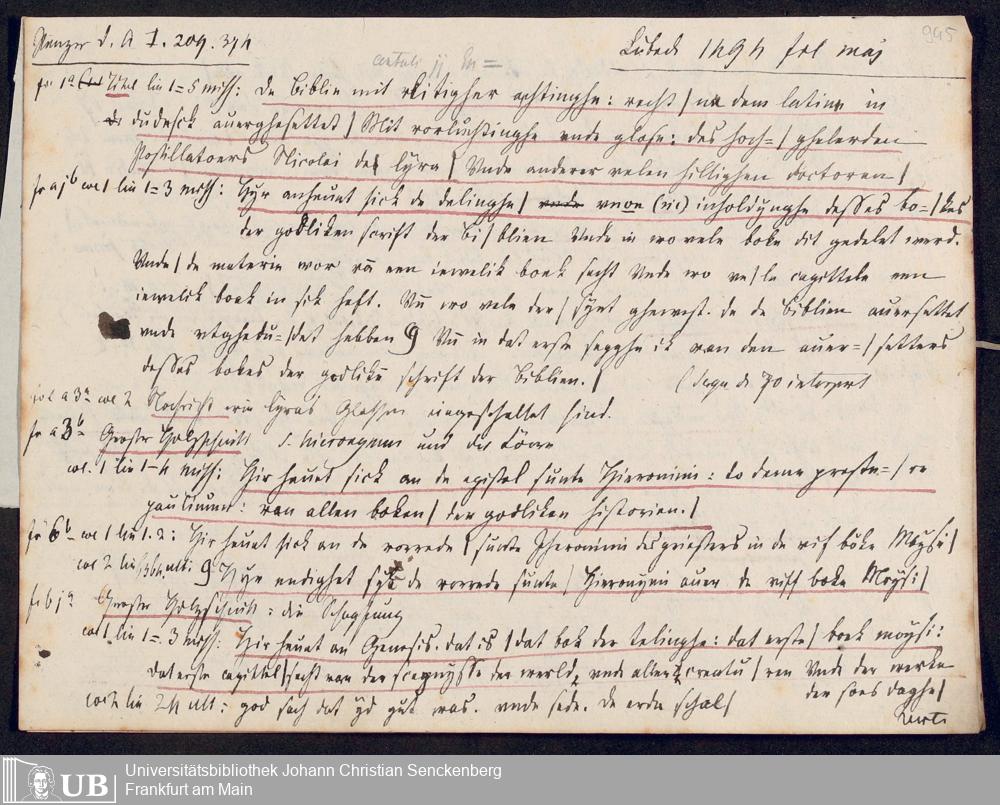 Panzer d. A I. 209. 374
Lübeck 1494 fol maj
945
fo 1a Titel lin 1=5 miss: De Biblie mit vlitigher achtinghe: recht / na dem latine in
dudesck auerghesettet / Mit vorluchtinghe vnde glose: des hoch= / ghelerden
Postillatoers Nicolai de lyra / Vnde anderer velen hillighen doctoren /
fo a jb col 1 lin 1=3 miss: Hyr anheuet sick de delinghe / vnde vnon (sic) inholdynghe desses bo= / kes
der godliken scrift der bi / blien Vnde in wo vele boke dit gedelet werd.
Vnde / de materie wor vā een iewelik boek secht Vnde wo ve / le capittele een
iewelik boek in sik heft. Vñ wo vele der / synt ghewest. de de Biblien auersettet
vnde vtghedu= / det hebben 9 Vñ in dat erste segghe ik van den auer= / setters
desses bokes der godlikē schrift der Biblien. /
(Sequ de 70 interpret
fol a 3a col 2 Nachricht wie Lyras Glossen eingeschaltet sind.
fo a 3b Grosser Holzschnitt S. Hieronymus und der Löwe
col. 1 lin 1–4 miss: Hir heuet sick an de epistel sunte Hieronimi: to deme preste= / re
paulinum: van allen boken / der godliken historien. /
fo 6b col 1 lin 1. 2: Hir heuet sick an de vorrede / sunte Iheronimi des priesters in de vif böke Moysi /
col 2 lin ult: 9 Hyr endighet syk de vorrede sunte / Hieronymi auer de viff boke Moysi /
fo b ja Grosser Holzschnitt: die Schöpfung
col 1 lin 1=3 miss: Hir heuet an Genesis. dat is / dat bok der telinghe: dat erste / boek moysi:
dat erste capittel / secht van der sceppnysse der werld, vnde aller creatu / ren Vnde der werke
der sees daghe /
col 2 lin 24 ult: god sach dat yd gut was. vnde sede. de erde schal /
Universitätsbibliothek Johann Christian Senckenberg
Frankfurt am Main
UB